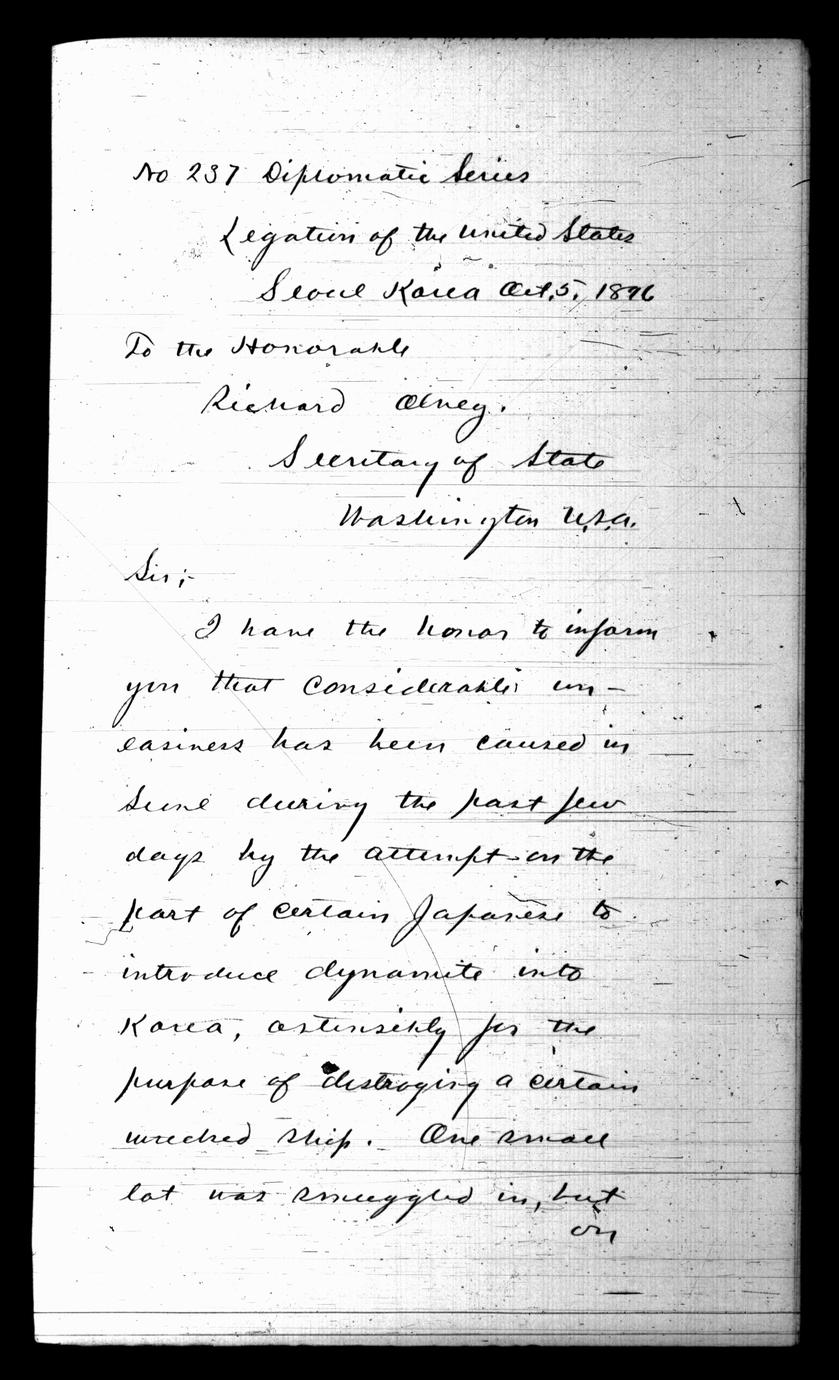 No 237 Diplomatic Series
Legation of the United States
Seoul Korea Oct. 5, 1896
To the Honorable
Richard Olney.
Secretary of State
Washington U.S.A.
Sir;-
I have the honor to inform
you that considerable un-
easiness has been caused in
Seoul during the past few
days by the attempt on the
part of certain Japanese to
introduce dynamite into
Korea, ostensibly for the
purpose of destroying a certain
wrecked ship. One small
lot was smuggled in, but
on